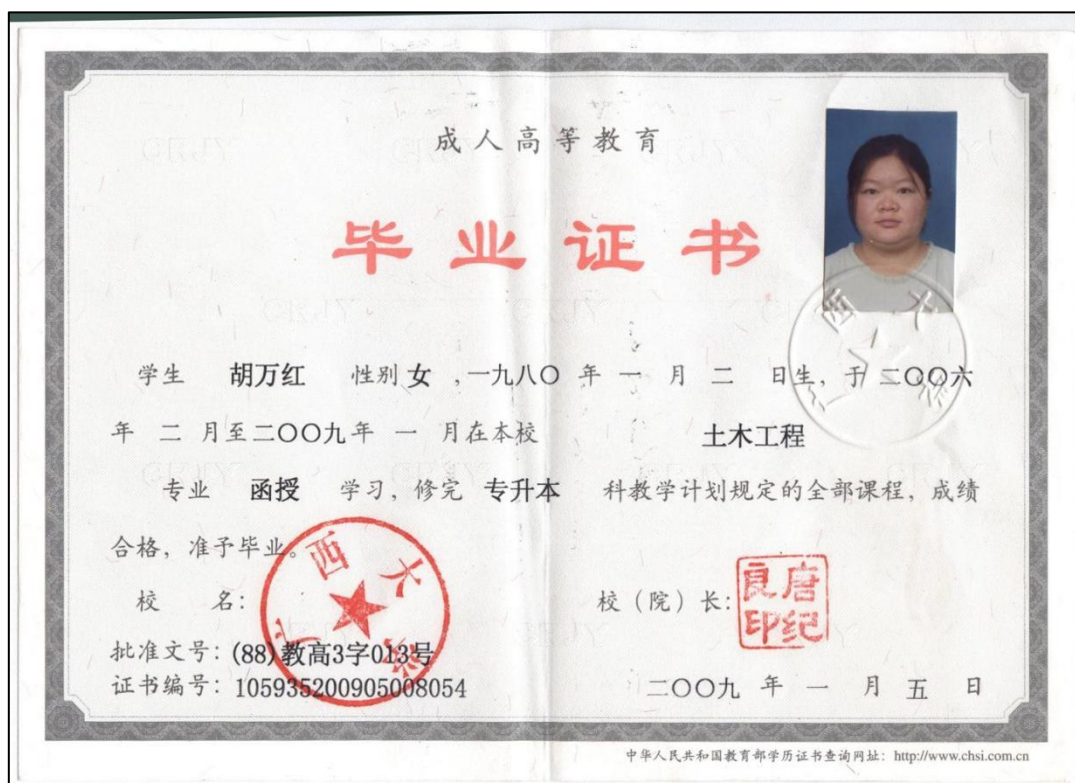 成人高等教育
毕业证书
学生 胡万红 性别 女 ,一九八〇 年 一 月 二 日生, 于 二〇〇六
年 二 月至二〇〇九年 一 月在本校 土木工程
专业 函授 学习, 修完 专升本 科教学计划规定的全部课程, 成绩
合格, 准予毕业。
校 名:
广西大学
校（院）长:
唐纪良印
批准文号: (88)教高3字013号
证书编号: 105935200905008054
二〇〇九 年 一 月 五 日
中华人民共和国教育部学历证书查询网址: http://www.chsi.com.cn
广西大学